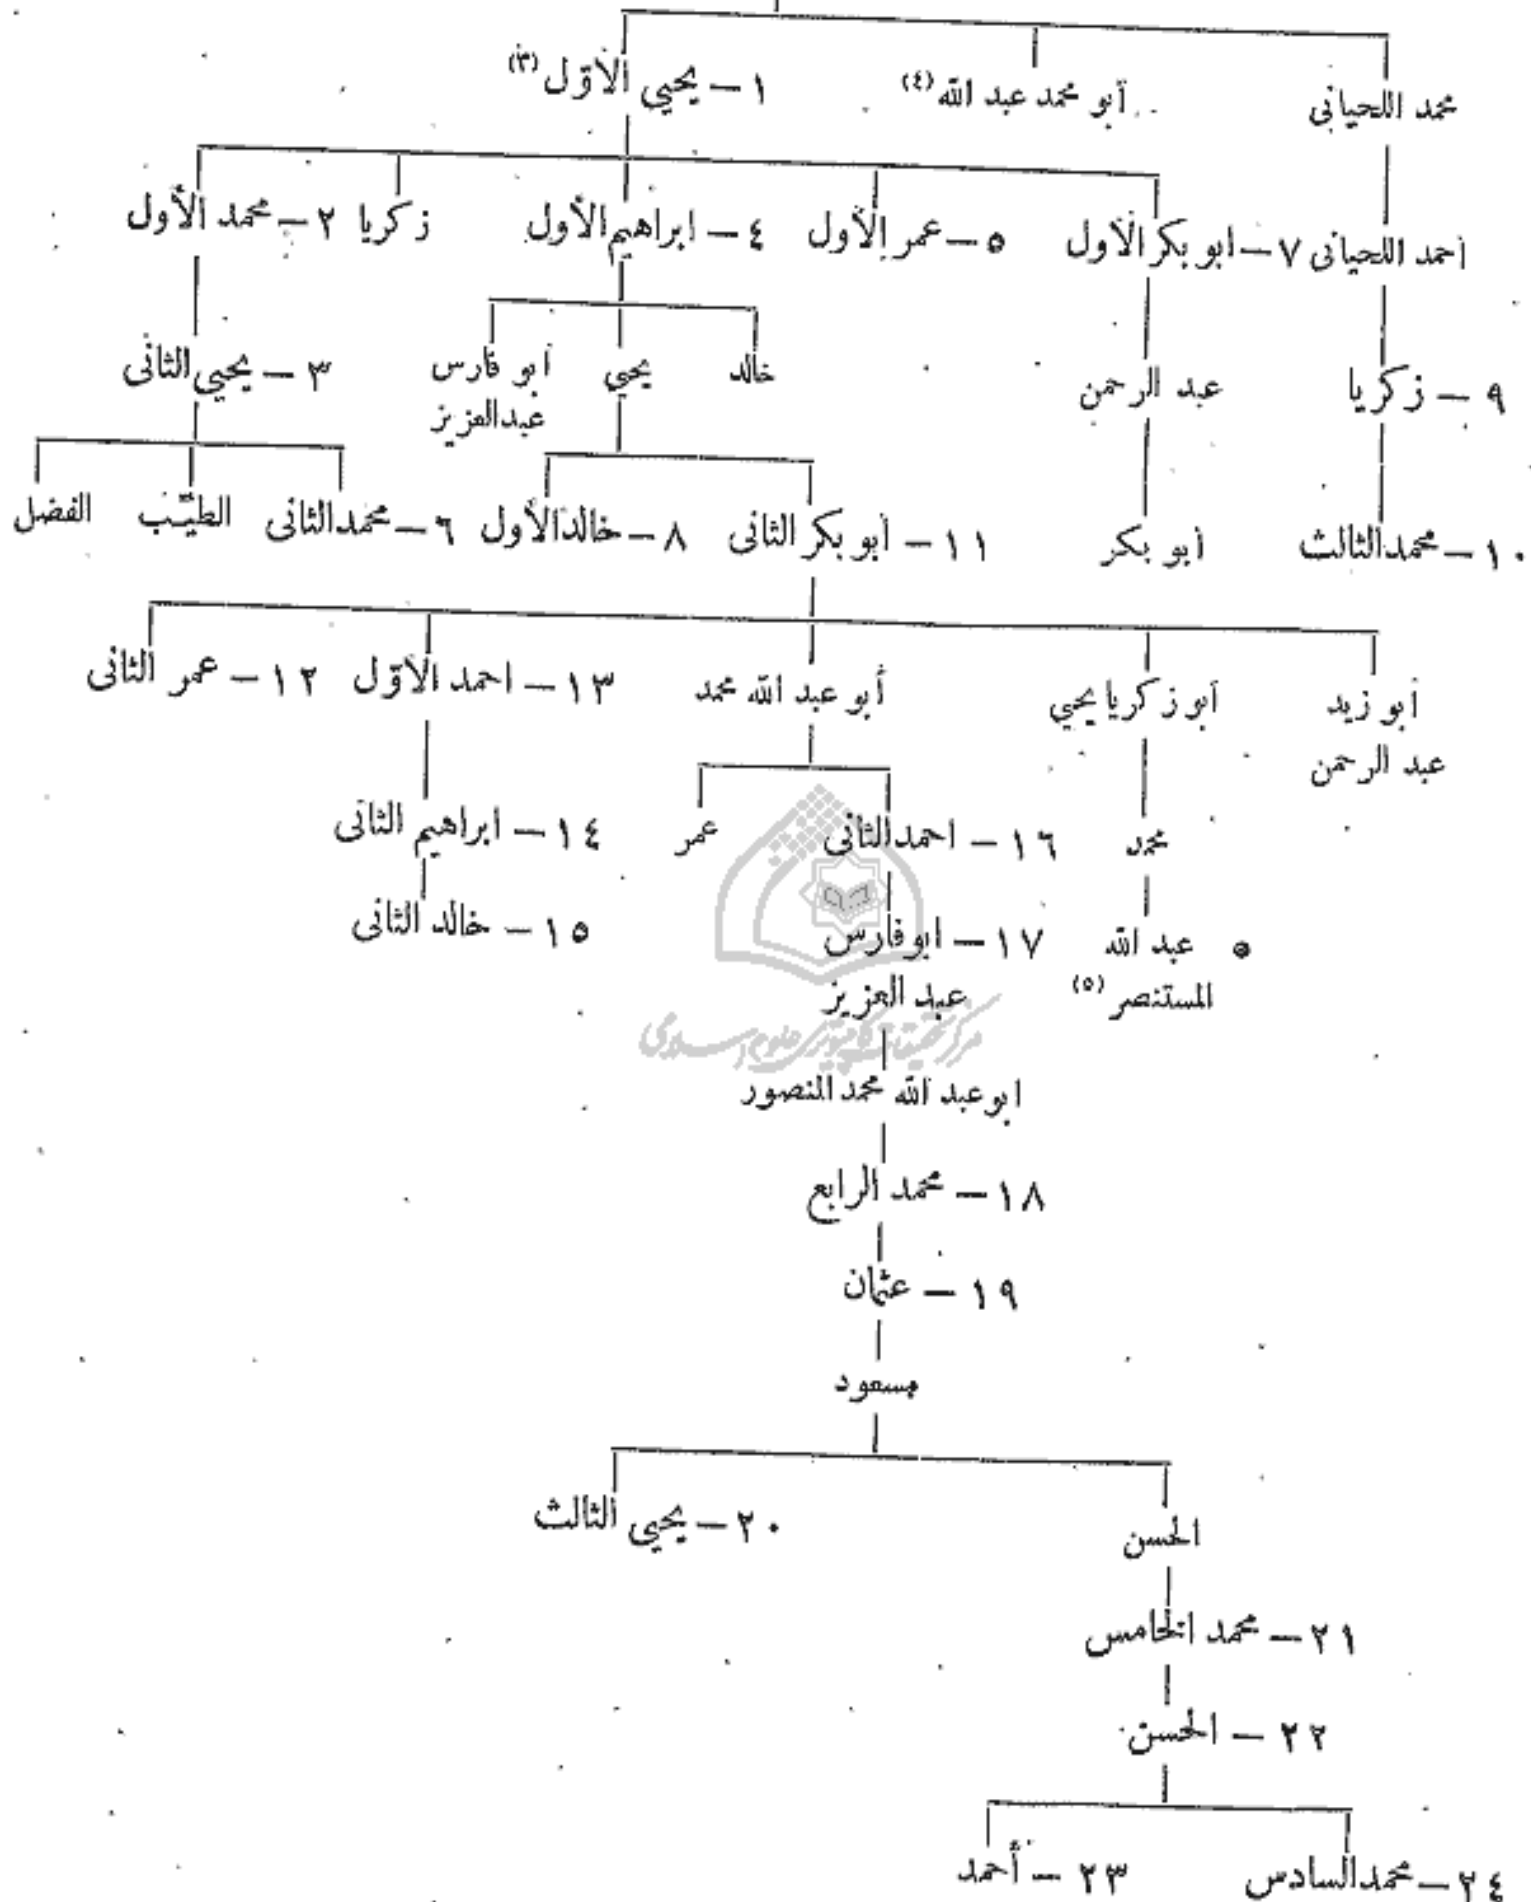 محمد اللحيانى أبو محمد عبد الله (٤) ١ – يحيي الأوّل (٣)
احمد اللحيانى ٧ – ابو بكر الأول ٥ – عمر الأول ٤ – ابراهيم الأول زكريا ٢ – محمد الأول
٩ – زكريا عبد الرحمن خالد يحيي ابو فارس ٣ – يحيي الثانى
عبد العزيز
١٠ – محمد الثالث أبو بكر ١١ – أبو بكر الثانى ٨ – خالد الأول ٦ – محمد الثانى الطيّب الفضل
أبو زيد ابو زكريا يحيي أبو عبد الله محمد ١٣ – احمد الأوّل ١٢ – عمر الثانى
عبد الرحمن
محمد ١٦ – احمد الثانى عمر ١٤ – ابراهيم الثانى
عبد الله ١٧ – ابو فارس ١٥ – خالد الثانى
المستنصر (٥) عبد العزيز
مركز تحقيقات كامپيوترى علوم اسلامى
ابو عبد الله محمد المنصور
١٨ – محمد الرابع
١٩ – عثمان
مسعود
الحسن ٢٠ – يحيي الثالث
٢١ – محمد الخامس
٢٢ – الحسن
٢٤ – محمد السادس ٢٣ – أحمد